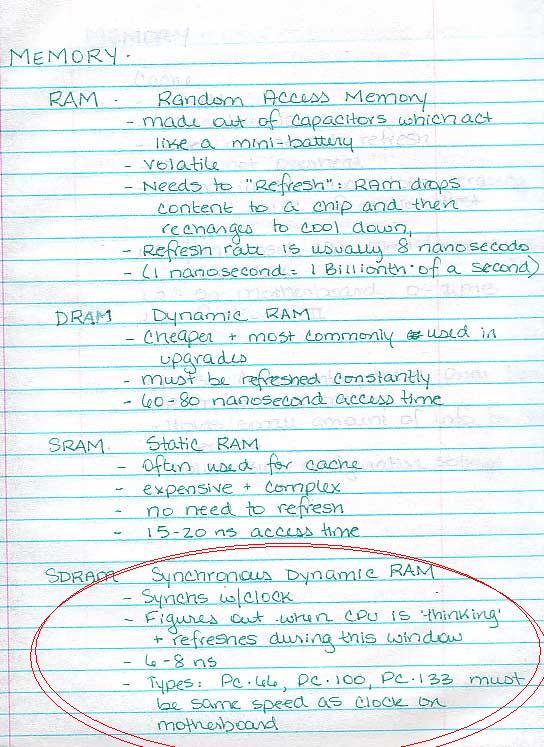 MEMORY.
RAM. Random Access Memory
- made out of capacitors which act
like a mini-battery
- Volatile
- Needs to "Refresh": RAM drops
content to a chip and then
rechanges to cool down,
- Refresh rate is usually 8 nanosecods
- (1 nanosecond = 1 Billionth of a second)
DRAM Dynamic RAM
- Cheaper + most commonly used in
upgrades
- must be refreshed constantly
- 60-80 nanosecond access time
SRAM. Static RAM
- Often used for cache
- expensive + complex
- no need to refresh
- 15-20 ns access time
SDRAM Synchronous Dynamic RAM
- Synchs w/clock
- Figures out when CPU is 'thinking'
+ refreshes during this window
- 6-8 ns
- Types: PC-66, PC-100, PC-133 must
be same speed as clock on
motherboard